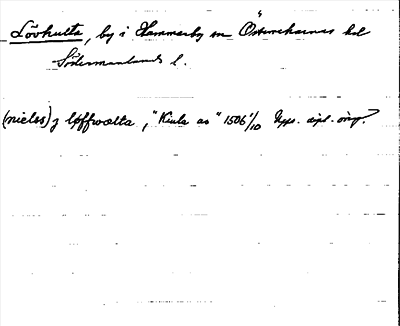 Lövhulta, by i Hammarby sn Österrekarnes hd
Södermanlands l.
(nielss) j löffwalta, "Kiula as" 1506 1/10 Upps. dipl. orig.